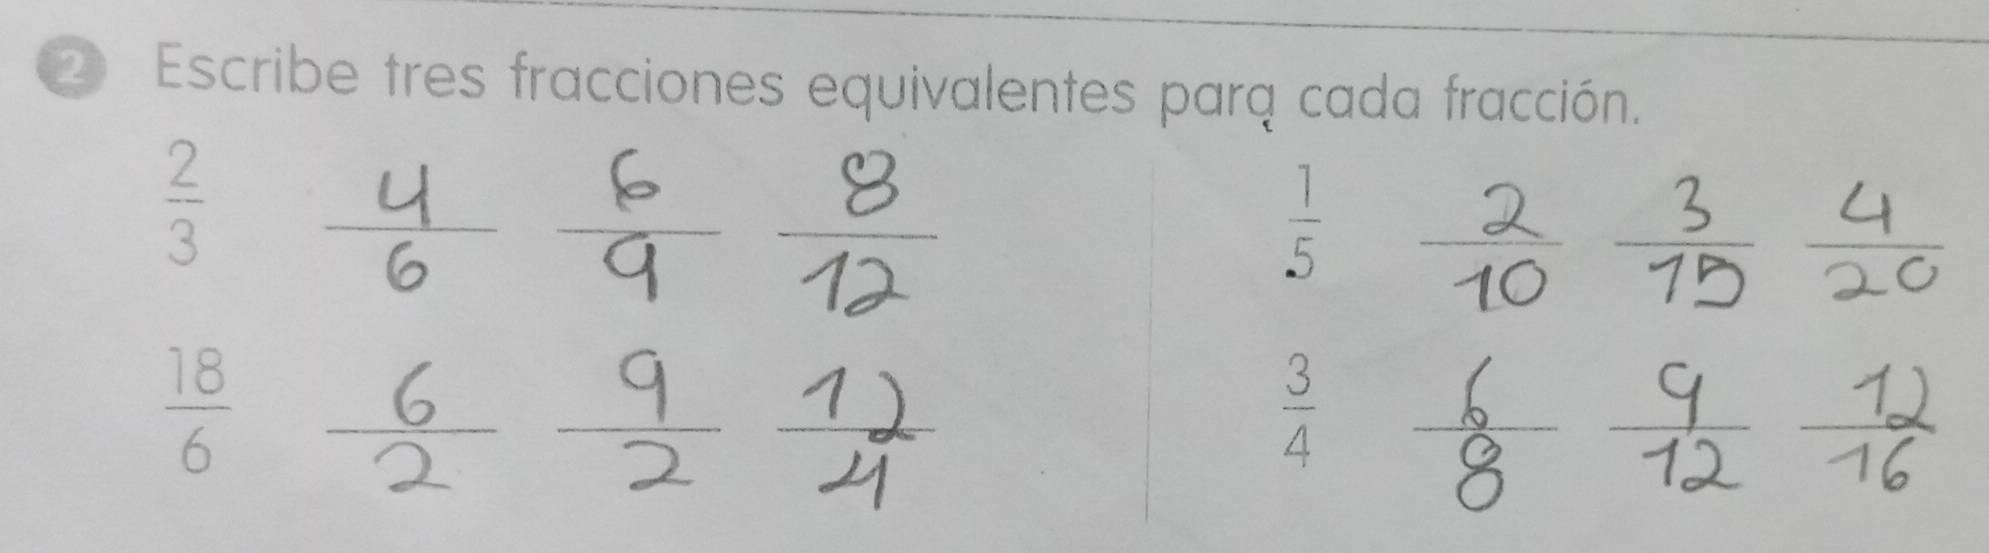 2 Escribe tres fracciones equivalentes para cada fracción.
2/3 4/6 6/9 8/12 1/5 2/10 3/15 4/20
18/6 6/2 9/2 12/4 3/4 6/8 9/12 12/16